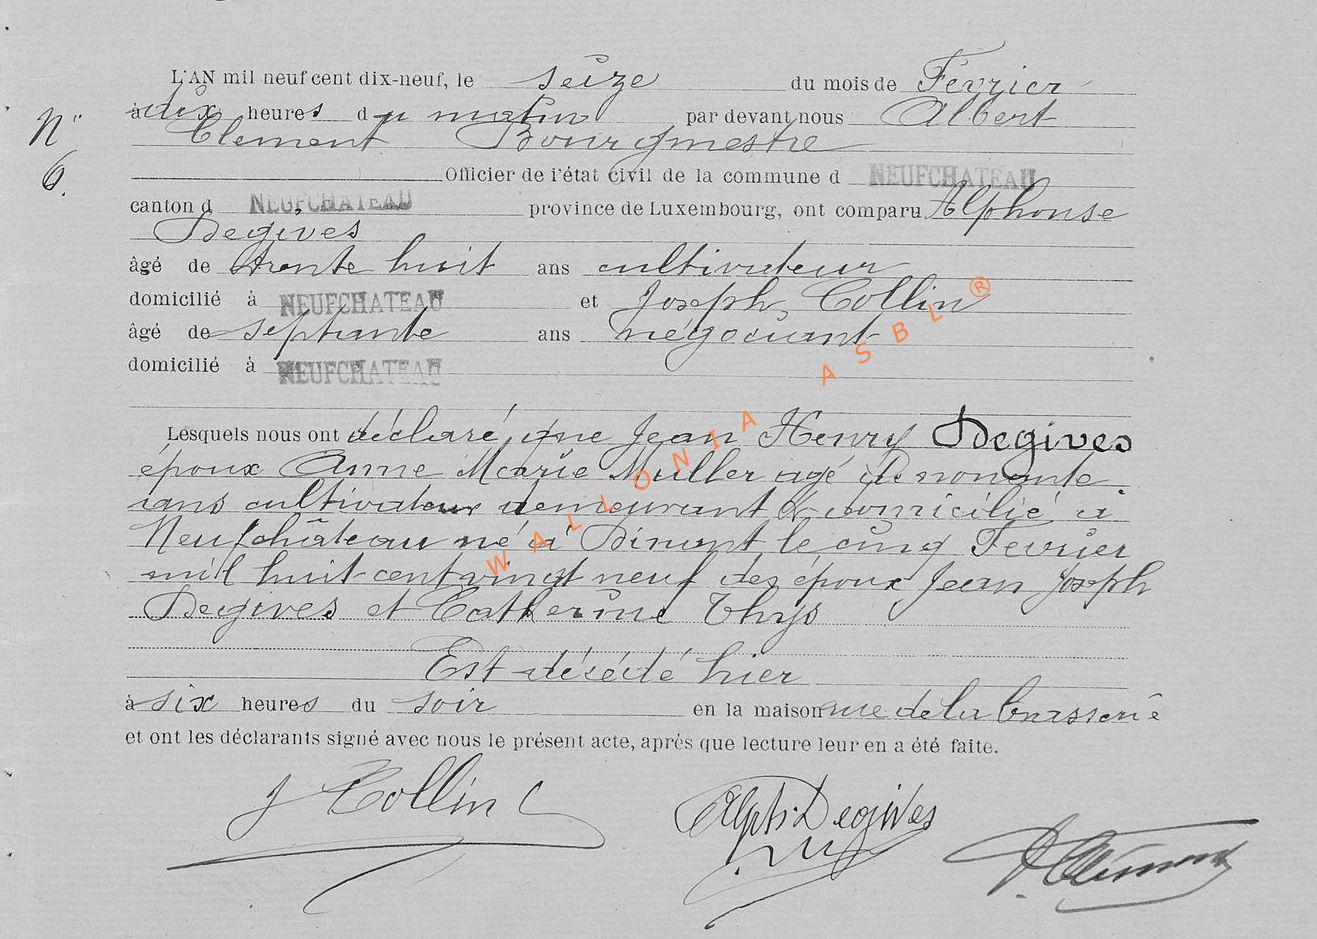 L'AN mil neuf cent dix-neuf, le seize du mois de Fevrier
à dix heures du matin par devant nous Albert
N° 6.
Clement Bourgmestre
Officier de l'état civil de la commune d NEUFCHATEAU
canton d NEUFCHATEAU province de Luxembourg, ont comparu Alphonse
Degives
âgé de trente huit ans cultivateur
domicilié à NEUFCHATEAU et Joseph Collin
âgé de septante ans négociant
domicilié à NEUFCHATEAU
Lesquels nous ont déclaré que Jean Henry Degives
époux Anne Marie Muller agé de nonante
ans cultivateur demeurant & domicilié a
Neufchâteau né à Dinant le cinq Fevrier
mil huit cent vingt neuf des époux Jean Joseph
Degives et Catherine Thys
Est décédé hier
à six heures du soir en la maison rue de la brasserie
et ont les déclarants signé avec nous le présent acte, après que lecture leur en a été faite.
J Collin Alph. Degives A. Clément
WALLONIA ASBL ®